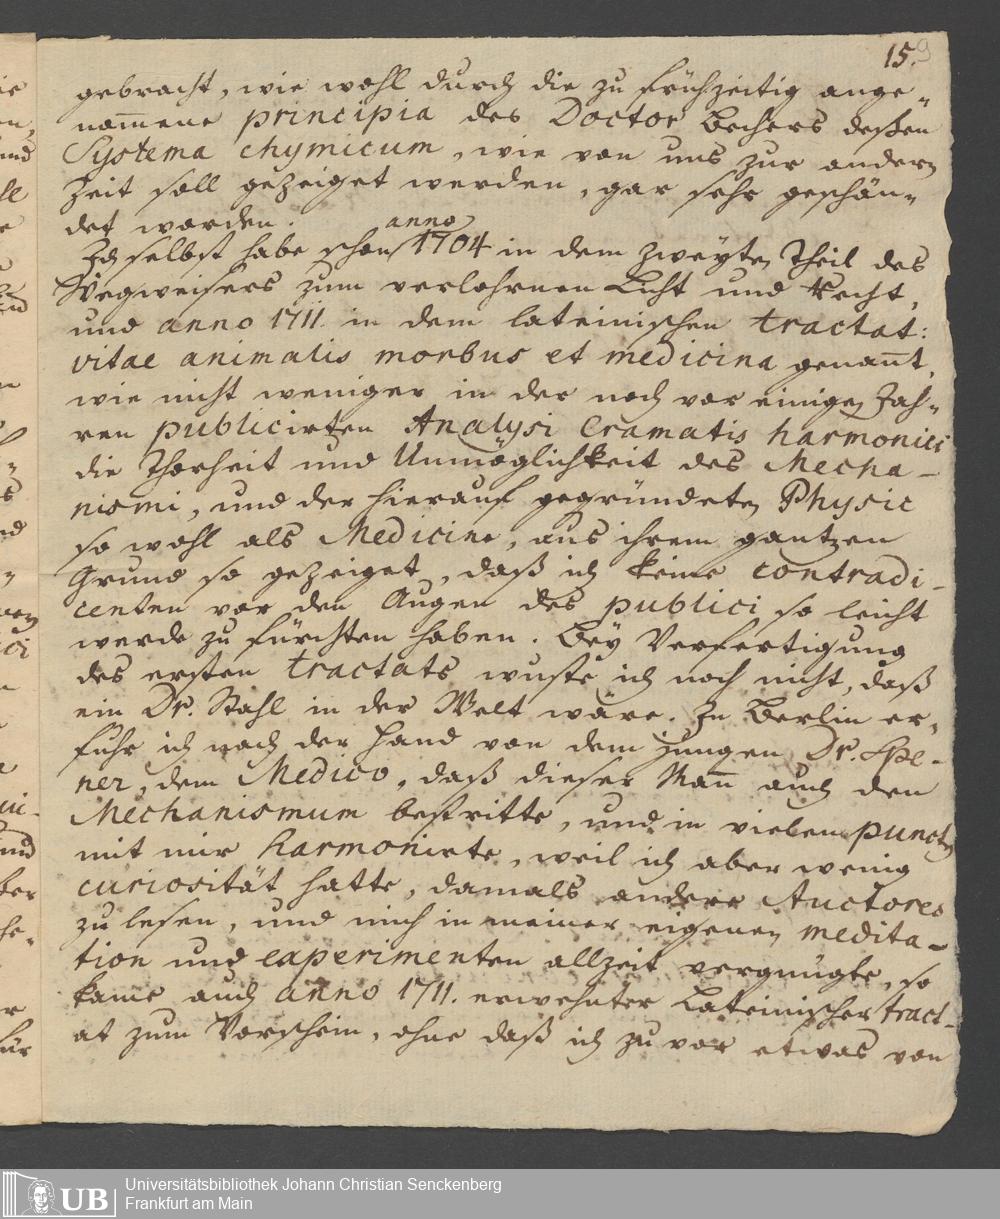 15.9
gebracht, wie wohl durch die zu frühzeitig ange-
nom̅ene principia des Doctor Bechers deßen
Systema chymicum, wie von uns zur andern
Zeit soll gezeiget werden, gar sehr geschän-
det worden.
Ich selbst habe schon anno 1704 in dem zweyten Theil des
Wegweisers zum verlohrnen Licht und Recht,
und anno 1711. in dem lateinischen tractat:
vitae animalis morbus et medicina genan̅t,
wie nicht weniger in der noch vor einigen Jah-
ren publicirten Analysi Cramatis harmonici
die Thorheit und Unmöglichkeit des Mecha-
nismi, und der hierauf gegründeten Physic
so wohl als Medicine, aus ihrem gantzen
Grund so gezeiget, daß ich keine contradi-
centen vor den Augen des publici so leicht
werde zu fürchten haben. Bey Verfertigung
des ersten tractats wuste ich noch nicht, daß
ein Dr. Stahl in der Welt wäre. Zu Berlin er-
fuhr ich nach der Hand von dem jungen Dr. Spe-
ner, dem Medico, daß dieser Man̅ auch den
Mechanismum bestritte, und in vielen puncten
mit mir harmonirte, weil ich aber wenig
curiosität hatte, damals andere Auctores
zu lesen, und mich in meiner eigenen medita-
tion und experimenten allzeit vergnügte, so
kame auch anno 1711. erwehnter Lateinischer tract-
at zum Vorschein, ohne daß ich zu vor etwas von
UB
Universitätsbibliothek Johann Christian Senckenberg
Frankfurt am Main